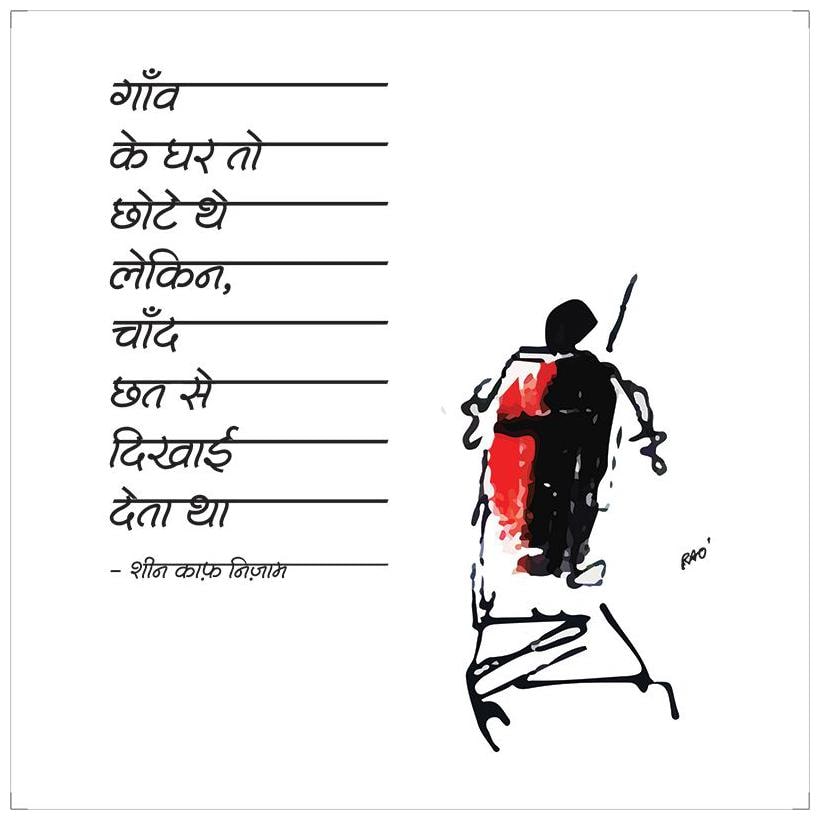 गाँव
के घर तो
छोटे थे
लेकिन,
चाँद
छत से
दिखाई
देता था
- शीन काफ़ निज़ाम
RAO'